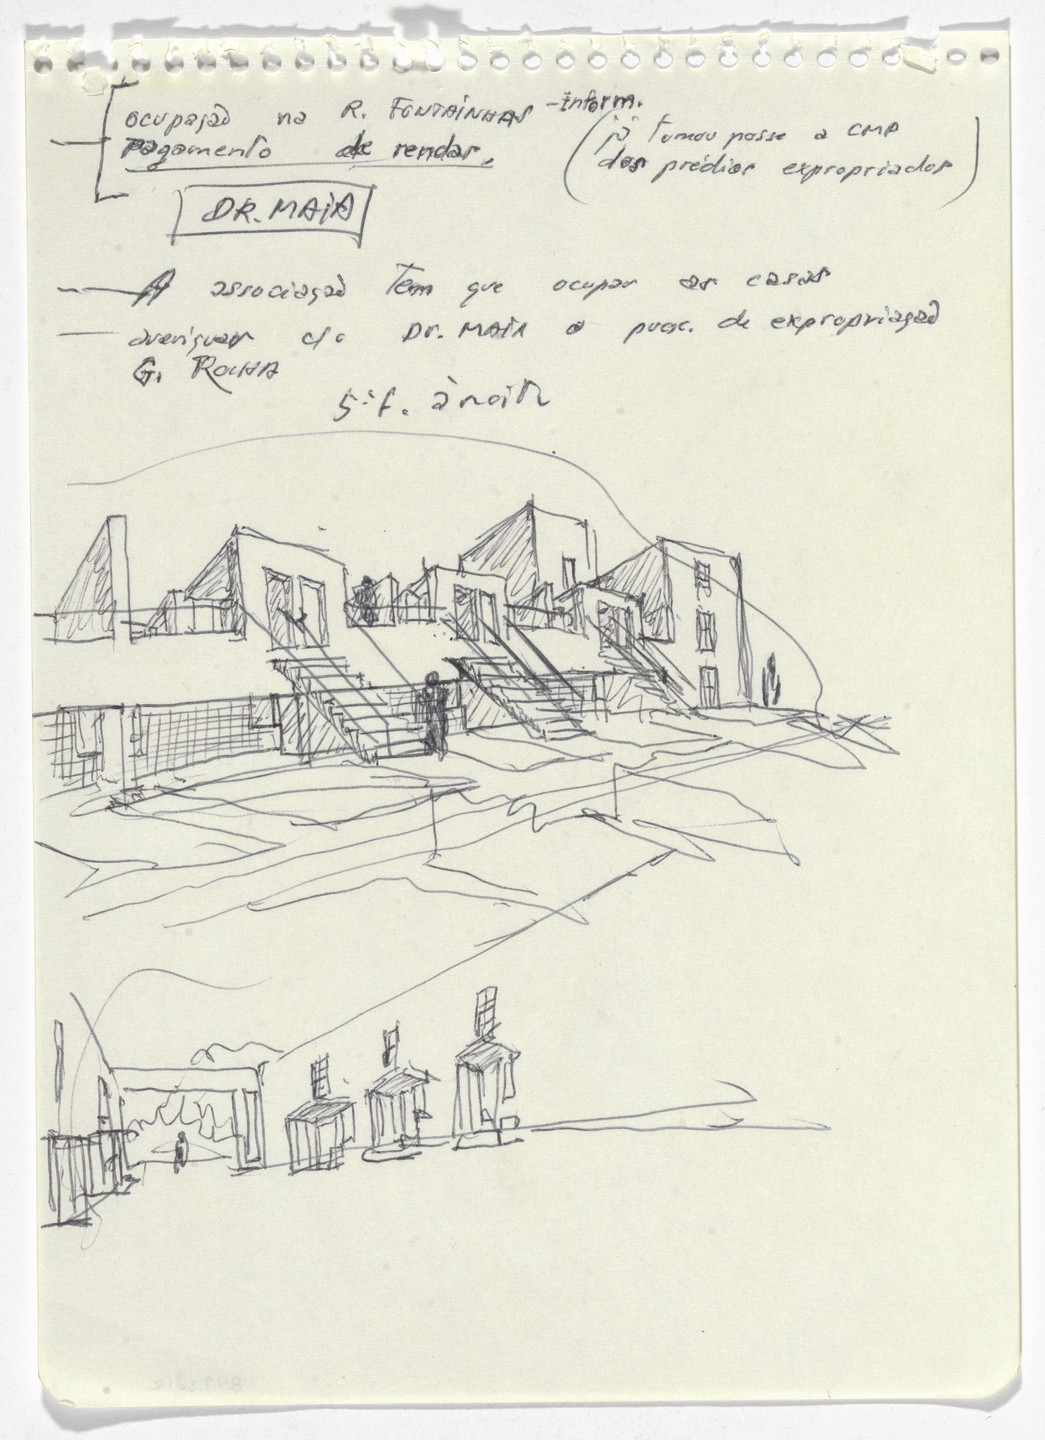 ocupação na R. FONTAINHAS - Inform.
Pagamento de rendas.
(já tomou posse a CMP
das prédios expropriados)
DR. MAIA
— A associação tem que ocupar as casas
— averiguar c/o DR. MAIA o proc. de expropriação
G. ROCHA
5ª f. à noite